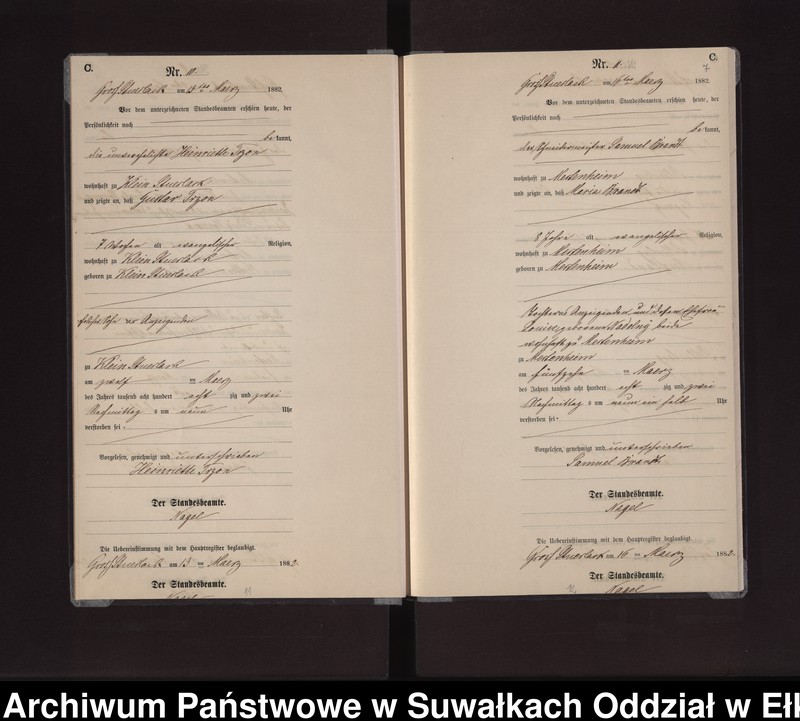 C.
Nr. 10.
Groß Stuerlack am 13ten Maerz 1882.
Vor dem unterzeichneten Standesbeamten erschien heute, der
Persönlichkeit nach
be kannt,
die unverehelichte Henriette
wohnhaft zu Klein Stuerlack
und zeigte an, daß Gustav
7 Wochen alt evangelischer Religion,
wohnhaft zu Klein Stuerlack
geboren zu Klein Stuerlack
Sohn der Anzeigenden
zu Klein Stuerlack
am zwölf ten Maerz
des Jahres tausend acht hundert acht zig und zwei
Nachmittag s um neun Uhr
verstorben sei.
Vorgelesen, genehmigt und unterschrieben
Henriette
Der Standesbeamte.
Nagel
Die Uebereinstimmung mit dem Hauptregister beglaubigt.
Groß Stuerlack am 13 ten Maerz 1882.
Der Standesbeamte.
Nagel
C.
7
Nr. 11.
Groß Stuerlack am 16ten Maerz 1882.
Vor dem unterzeichneten Standesbeamten erschien heute, der
Persönlichkeit nach
be kannt,
der Schneidermeister Samuel Brandt
wohnhaft zu Mertenheim
und zeigte an, daß Maria Brandt
8 Jahre alt evangelischer Religion,
wohnhaft zu Mertenheim
geboren zu Mertenheim
Tochter des Anzeigenden und dessen Ehefrau
Louise geborene beide
wohnhaft zu Mertenheim
zu Mertenheim
am fünfzehn ten Maerz
des Jahres tausend acht hundert acht zig und zwei
Nachmittag s um neun ein halb Uhr
verstorben sei.
Vorgelesen, genehmigt und unterschrieben
Samuel Brandt
Der Standesbeamte.
Nagel
Die Uebereinstimmung mit dem Hauptregister beglaubigt.
Groß Stuerlack am 16 ten Maerz 1882.
Der Standesbeamte.
Nagel
Archiwum Państwowe w Suwałkach Oddział w Eł